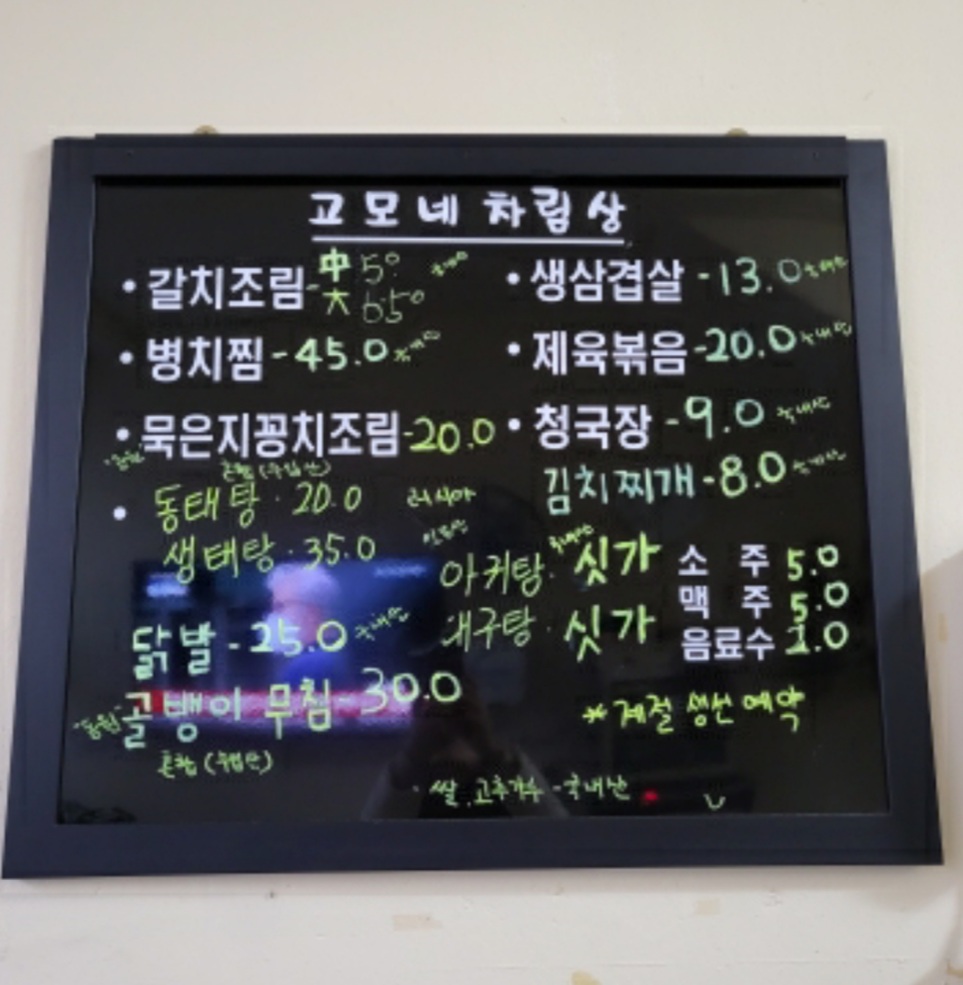 고모네 차림상
• 갈치조림 - 中 5⁰
大 65⁰
• 병치찜 - 45.0
• 묵은지꽁치조림 - 20.0
혼합 (수입산)
• 동태탕 · 20.0 러시아
생태탕 · 35.0
닭발 - 25.0 국내산
"동원" 골뱅이 무침 - 30.0
혼합 (수입산)
• 생삼겹살 - 13.0
• 제육볶음 - 20.0 국내산
• 청국장 - 9.0 국내산
김치찌개 - 8.0 국내산
아귀탕 · 싯가
대구탕 · 싯가
소 주 5.0
맥 주 5.0
음료수 2.0
* 계절 생선 예약
· 쌀, 고추가루 - 국내산